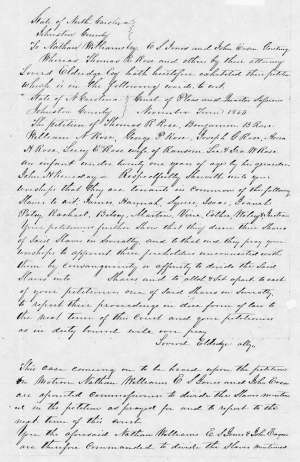 State of North Carolina
Johnston County
To Nathan Williams Esq C S Jones and John Coor Greeting
Whereas Thomas R Rose and others by their attorney
Lovard Eldridge Esq hath heretofore exhibited their petition
which is in the following words to wit
State of N Carolina Court of Pleas and Quarter Sessions
Johnston County November Term 1844
The petition of Thomas R Rose, Benjamin B Rose
William A Rose, George P Rose, Joseph C Rose, Anna
H Rose, Sarey E Rose wife of Ransom
an infant under twenty one years of age by her guardian
John H Kennedy Respectfully Sheweth unto your
worships that they are tenants in common of the following
Slaves to wit, James, Hannah, Squire, Isaac, Daniel
Patsy Rachael, Betsey, Martin, Wm, Esther, Wiley &
Your petitioners further Shew that they desire their Shares
of Said Slaves in Severalty, and to that end they pray your
worships to appoint three freeholders unconnected with
them by consanguinity or affinity to divide the Said
Slaves into Shares and to allot & Set apart to each
of your petitioners one of Said Shares in Severalty
to report their proceedings in due form of law to
the next term of this Court and your petitioners
as in duty bound will ever pray
Lovard Eldridge atty
This case coming on to be heard upon the petition
On Motion Nathan Williams C S Jones and John Coor
are appointed commissioners to divide the Slaves mention
ed in the petition as prayed for and to report to the
next term of this court
You the aforesaid Nathan Williams C S Jones & John Coor
are therefore Commanded to divide the Slaves mentioned